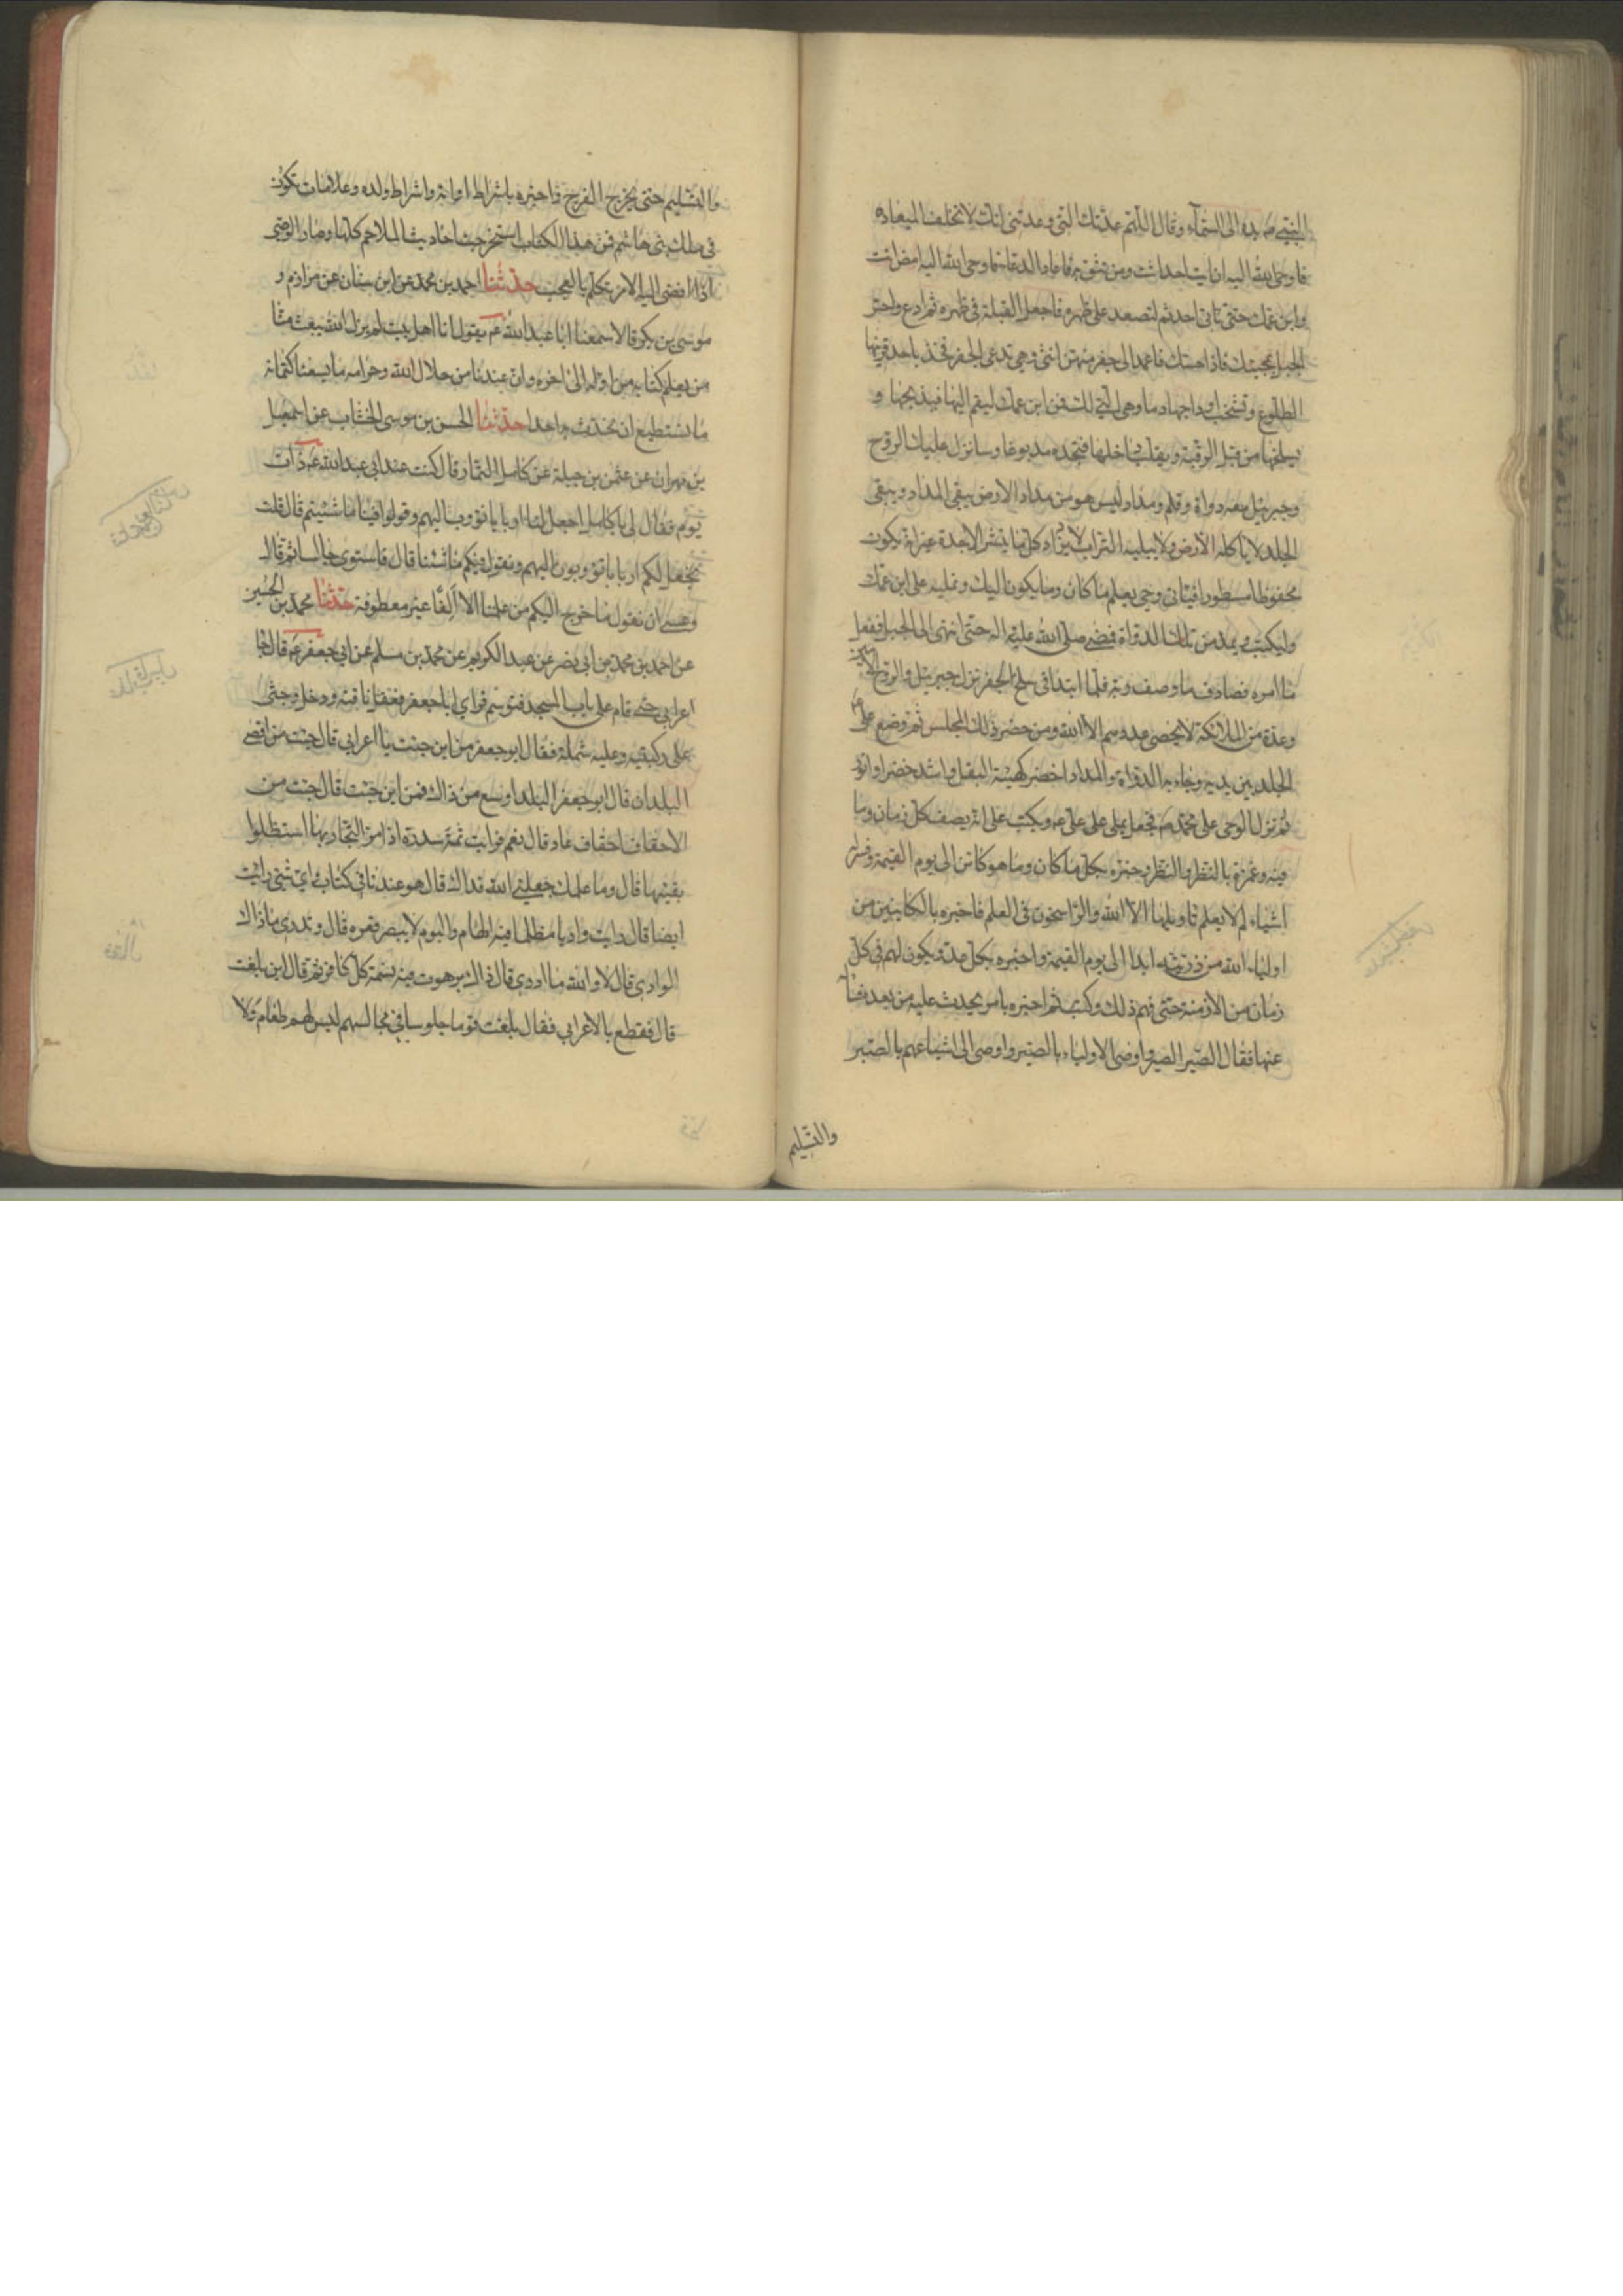 النبي ص يده الى السماء وقال اللهم عدتك التي وعدتني انك لا تخلف الميعاد
فاوحى الله اليه ان ايت احدا انت ومن تثق به فاعاد الدعا فاوحى الله اليه امض انت
وابن عمك حتى تاتي احد ثم لتصعد على ظهره فاجعل القبلة في ظهره ثم ادع واحتر
الجبل يجبك فاذا اجابتك فاعمد الى جفرة منهن انثى وهي تدعى الجفرة تجذ باحد قرنيها
الطلوع وتشخب اوداجها دما وهي التي لك فمر ابن عمك ليقم اليها فيذبحها و
يسلخها من قبل الرقبة ويقلب داخلها فتجده مدبوغا وسانزل عليك الروح
وجبرئيل معه دواة وقلم ومداد ليس هو من مداد الارض يبقى المداد ويبقى
الجلد لا ياكله الارض ولا يبليه التراب لا يزداد كل ما ينشر الا جدة غير انه يكون
محفوظا مستورا فياتي وحي بعلم ما كان وما يكون اليك وتمليه على ابن عمك
وليكتب ويمد من تلك الدواة فمضى صلى الله عليه اله حتى انتهى الى الجبل ففعل
ما امره فصادف ما وصف ربه فلما ابتدا في سلخ الجفر نزل جبرئيل والروح الامين
وعدة من الملائكة لا يحصي عددهم الا الله ومن حضر ذلك المجلس ثم وضع علي ع
الجلد بين يديه وجاء به الدواة والمداد اخضر كهيئة البقل واشد خضرا وانور
ثم نزل الوحي على محمد ص فجعل يملي على علي ع ويكتب علي انه يصف كل زمان وما
فيه وغمزه بالنظر والنظر وخبره بكل ما كان وما هو كائن الى يوم القيمة وفسر
اشياء لا يعلم تاويلها الا الله والراسخون في العلم فاخبره بالكاينين من
اولياء الله من ذريته ابدا الى يوم القيمة واخبره بكل عدو يكون لهم في كل
زمان من الازمنة حتى فهم ذلك وكتب ثم اخبره بامر يحدث عليه من بعده فساله
عنها فقال الصبر الصبر واوصى الاولياء بالصبر واوصى الى اشياعهم بالصبر
والتسليم
والتسليم حتى يخرج الفرج واخبره باشراط اوانه واشراط ولده وعلامات تكون
في ملك بني هاشم فمن هذا الكتاب استخرجت احاديث الملاحم كلها وصار الوصي
اذا افضى اليه الامر تكلم بالعجب حدثنا احمد بن محمد عن ابن سنان عن مرازم و
موسى بن بكر قالا سمعنا ابا عبد الله ع يقول انا اهل بيت لم يزل الله يبعث منا
من يعلم كتابه من اوله الى اخره وان عندنا من حلال الله وحرامه ما يسعنا كتمانه
ما نستطيع ان نحدث به احدا حدثنا الحسن بن موسى الخشاب عن اسمعيل
بن مهران عن عثمن بن جبلة عن كامل التمار قال كنت عند ابي عبد الله ع ذات
يوم فقال لي يا كامل اجعل لنا ربا نؤوب اليهم وقولوا فينا ما شئتم قال قلت
نجعل لكم اربابا تؤوبون اليهم ونقول فيكم ما شئنا قال فاستوى جالسا ثم قال
وعسى ان نقول ما خرج اليكم من علمنا الا الفا غير معطوفة حدثنا محمد بن الحسين
عن احمد بن محمد بن ابي نصر عن عبد الكريم عن محمد بن مسلم عن ابي جعفر ع قال جا
اعرابي حتى قام على باب المسجد فتوسم فراى ابا جعفر فعقل ناقته ودخل وجثى
على ركبتيه وعليه شملة فقال ابو جعفر من اين جئت يا اعرابي قال جئت من اقصى
البلدان قال ابو جعفر البلد اوسع من ذاك فمن اين جئت قال جئت من
الاحقاف احقاف عاد قال نعم فرايت ثمة سدرة اذا مر التجار بها استظلوا
بفيئها قال وما علمك جعلني الله فداك قال هو عندنا في كتاب واي شئ رايت
ايضا قال رايت واديا مظلما فيه الهام والبوم لا يبصر قعره قال وتدري ما ذاك
الوادي قال لا والله ما ادري قال ذاك برهوت فيه نسمة كل كافر ثم قال اين بلغت
قال فقطع بالاعرابي فقال بلغت قوما جلوسا في مجالسهم ليس لهم طعام ولا